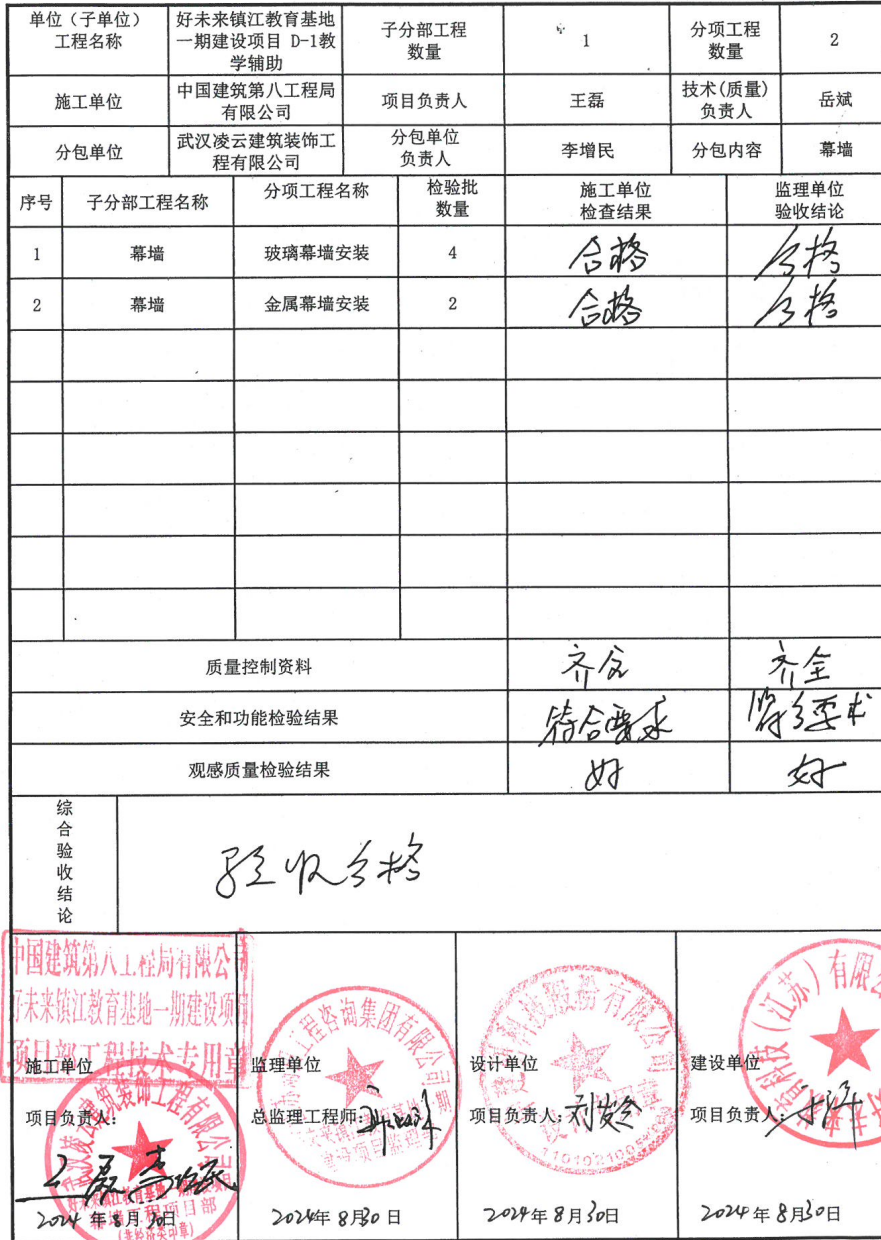 单位（子单位）
工程名称
好未来镇江教育基地
一期建设项目 D-1教
学辅助
子分部工程
数量
1
分项工程
数量
2
施工单位
中国建筑第八工程局
有限公司
项目负责人
王磊
技术(质量)
负责人
岳斌
分包单位
武汉凌云建筑装饰工
程有限公司
分包单位
负责人
李增民
分包内容
幕墙
序号
子分部工程名称
分项工程名称
检验批
数量
施工单位
检查结果
监理单位
验收结论
1
幕墙
玻璃幕墙安装
4
合格
合格
2
幕墙
金属幕墙安装
2
合格
合格
质量控制资料
齐全
齐全
安全和功能检验结果
符合要求
符合要求
观感质量检验结果
好
好
综合验收结论
验收合格
中国建筑第八工程局有限公司
好未来镇江教育基地一期建设项目
项目部工程技术专用章
施工单位
项目负责人：
武汉凌云建筑装饰工程有限公司
王磊 李增民
好未来镇江教育基地一期建设项目
幕墙工程项目部
2024年8月30日
监理单位
工程咨询集团有限公司
总监理工程师：
2024年8月30日
设计单位
科技股份有限公司
项目负责人：
2024年8月30日
建设单位
科技（江苏）有限公
项目负责人：
2024年8月30日